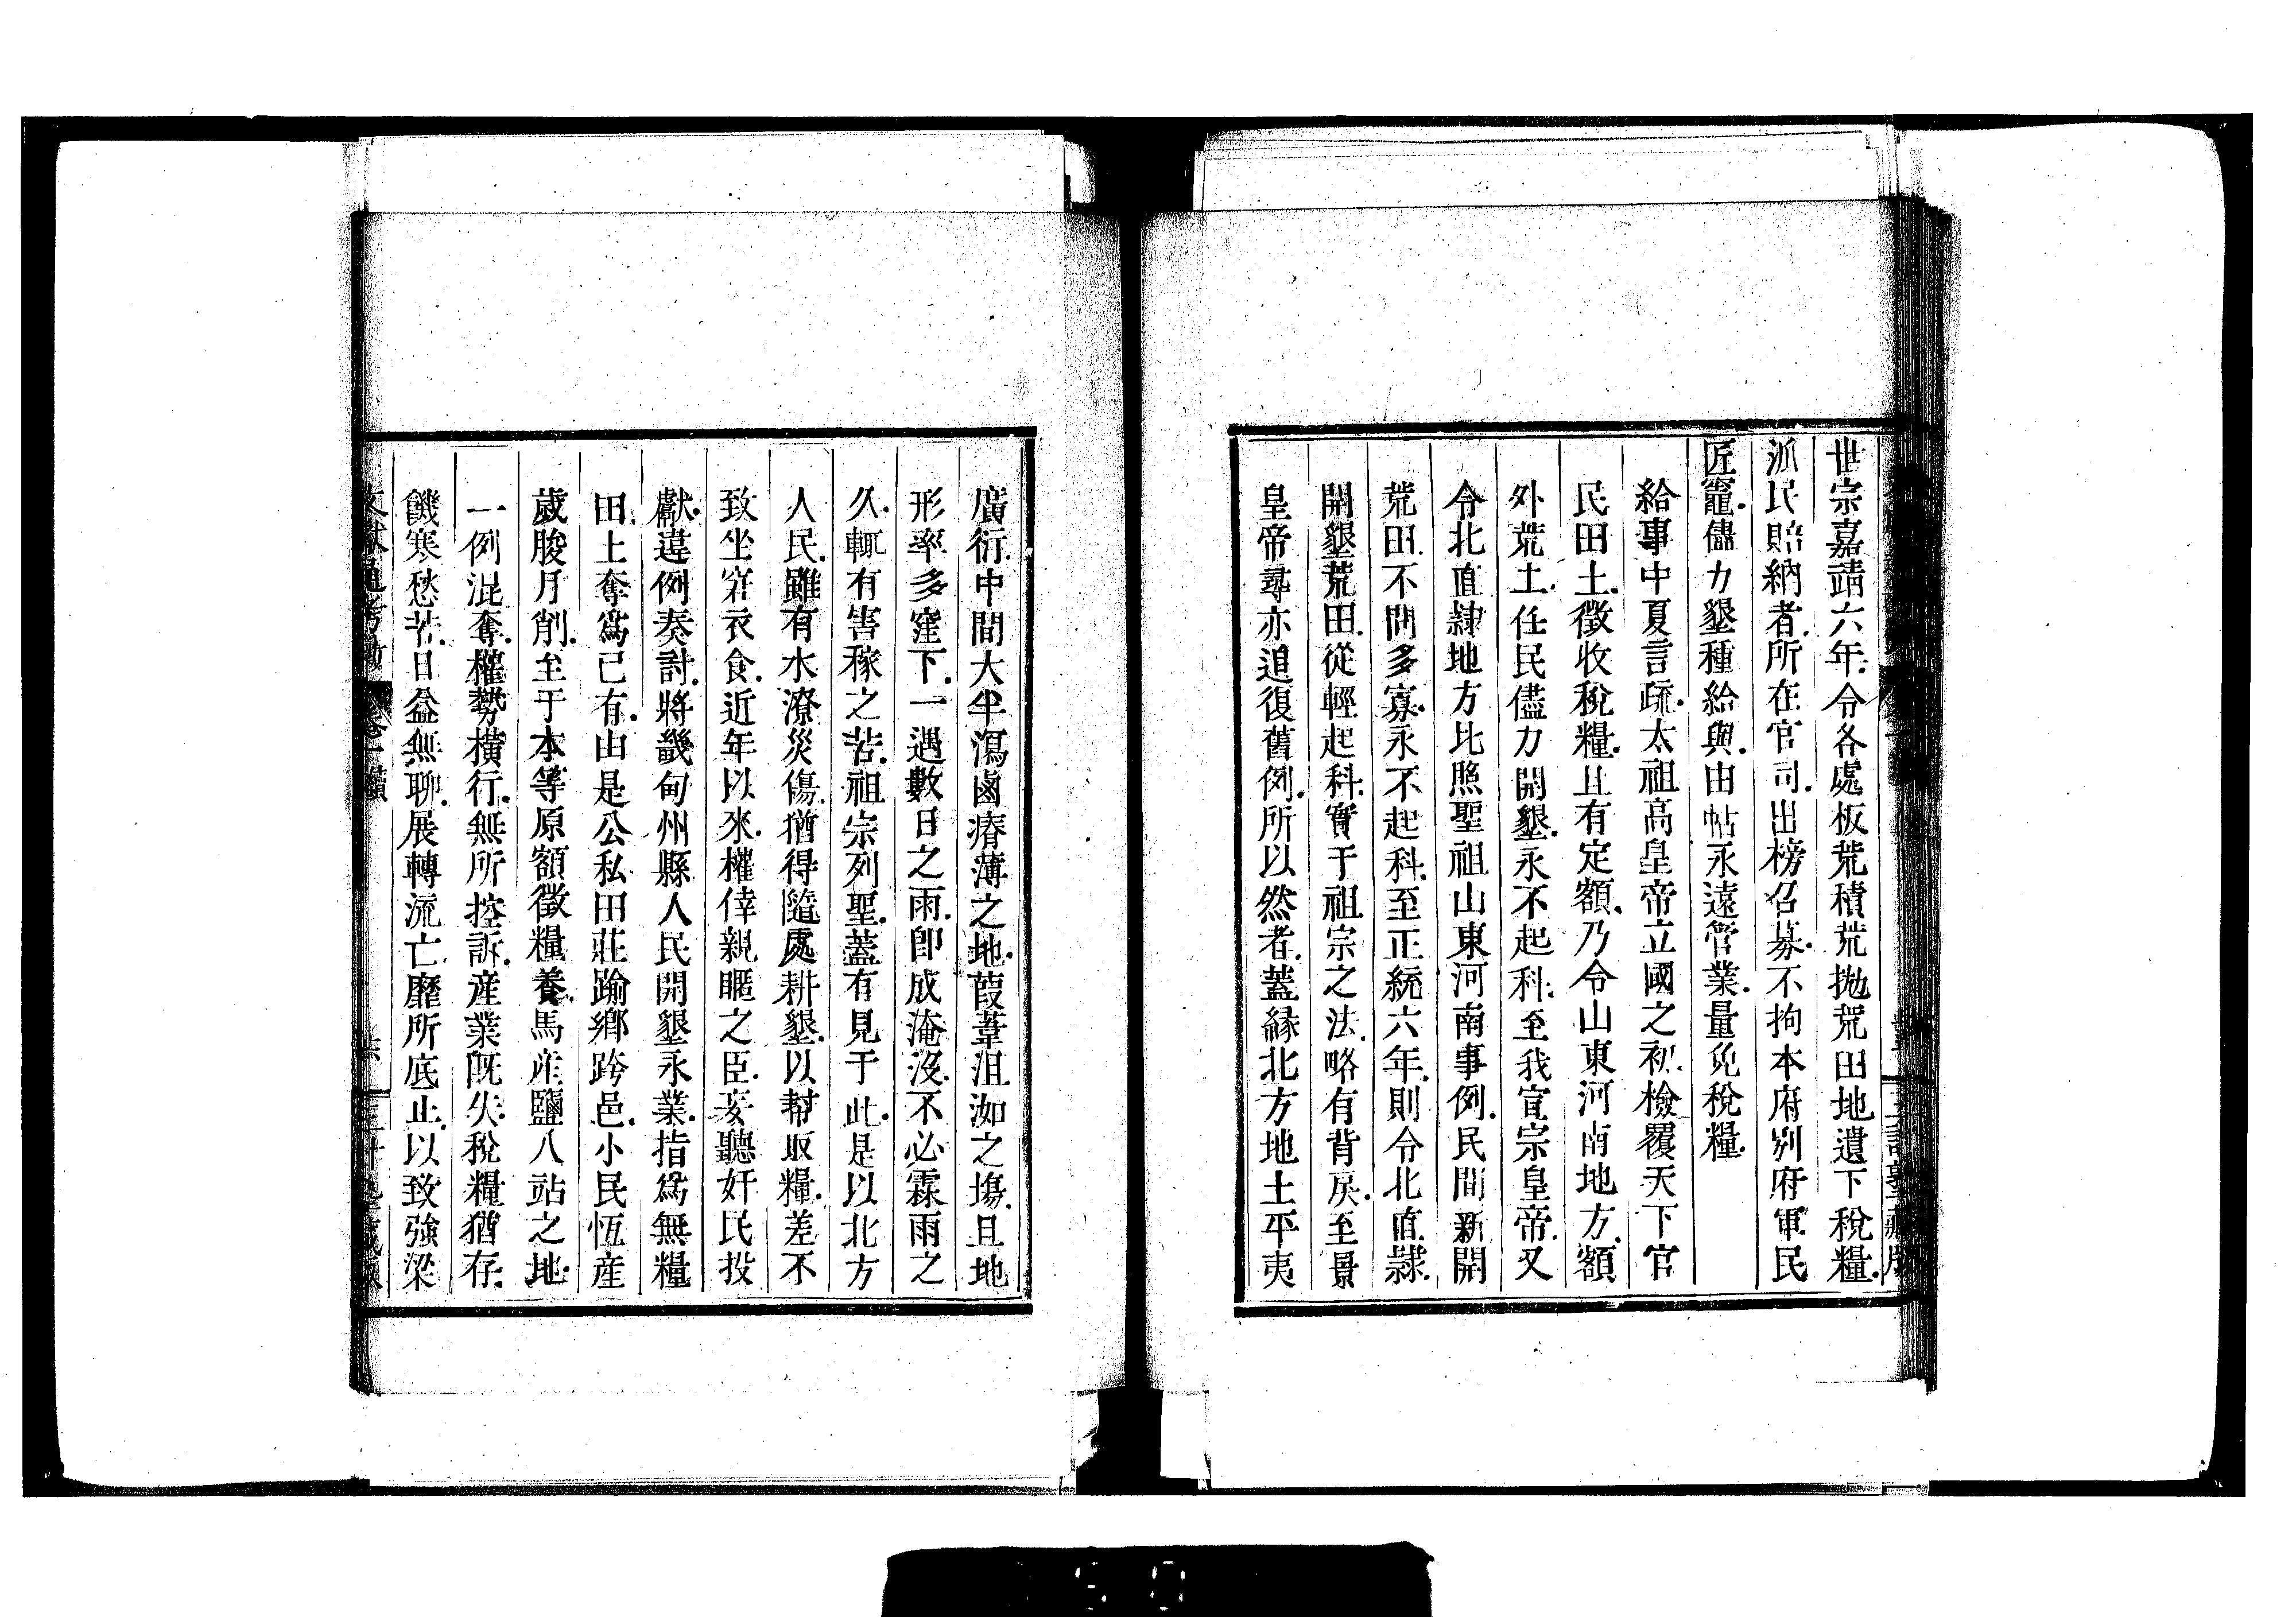 世宗嘉靖六年.令各處板荒積荒拋荒田地遺下稅糧.
派民賠納者.所在官司.出榜召募.不拘本府別府軍民
匠竈.儘力墾種給與.由帖永遠管業.量免稅糧.
給事中夏言疏.太祖高皇帝立國之初.檢覆天下官
民田土.徵收稅糧.且有定額.乃令山東河南地方.額
外荒土.任民儘力開墾.永不起科.至我宣宗皇帝.又
令北直隷地方比照聖祖山東河南事例.民間新開
荒田.不問多寡.永不起科.至正統六年.則令北直隷.
開墾荒田.從輕起科.實于祖宗之法.略有背戾.至景
皇帝尋亦追復舊例.所以然者.蓋緣北方地土平夷
廣衍.中間大半瀉鹵瘠薄之地.葭葦沮洳之塲.且地
形率多窪下.一遇數日之雨.卽成淹沒.不必霖雨之
久.輒有害稼之苦.祖宗列聖.蓋有見于此.是以北方
人民.雖有水潦災傷.猶得隨處耕墾.以幇取糧.差不
致坐窘衣食.近年以來.權倖親暱之臣.妄聽奸民投
獻.違例奏討.將畿甸州縣人民開墾永業.指爲無糧
田土奪爲己有.由是公私田莊踰鄉跨邑.小民恆産
歲朘月削.至于本等原額徵糧養馬產鹽八站之地.
一例混奪.權勢橫行.無所控訴.産業旣失.稅糧猶存.
饑寒愁苦.日益無聊.展轉流亡.靡所底止.以致強梁
文獻通考 卷一 續